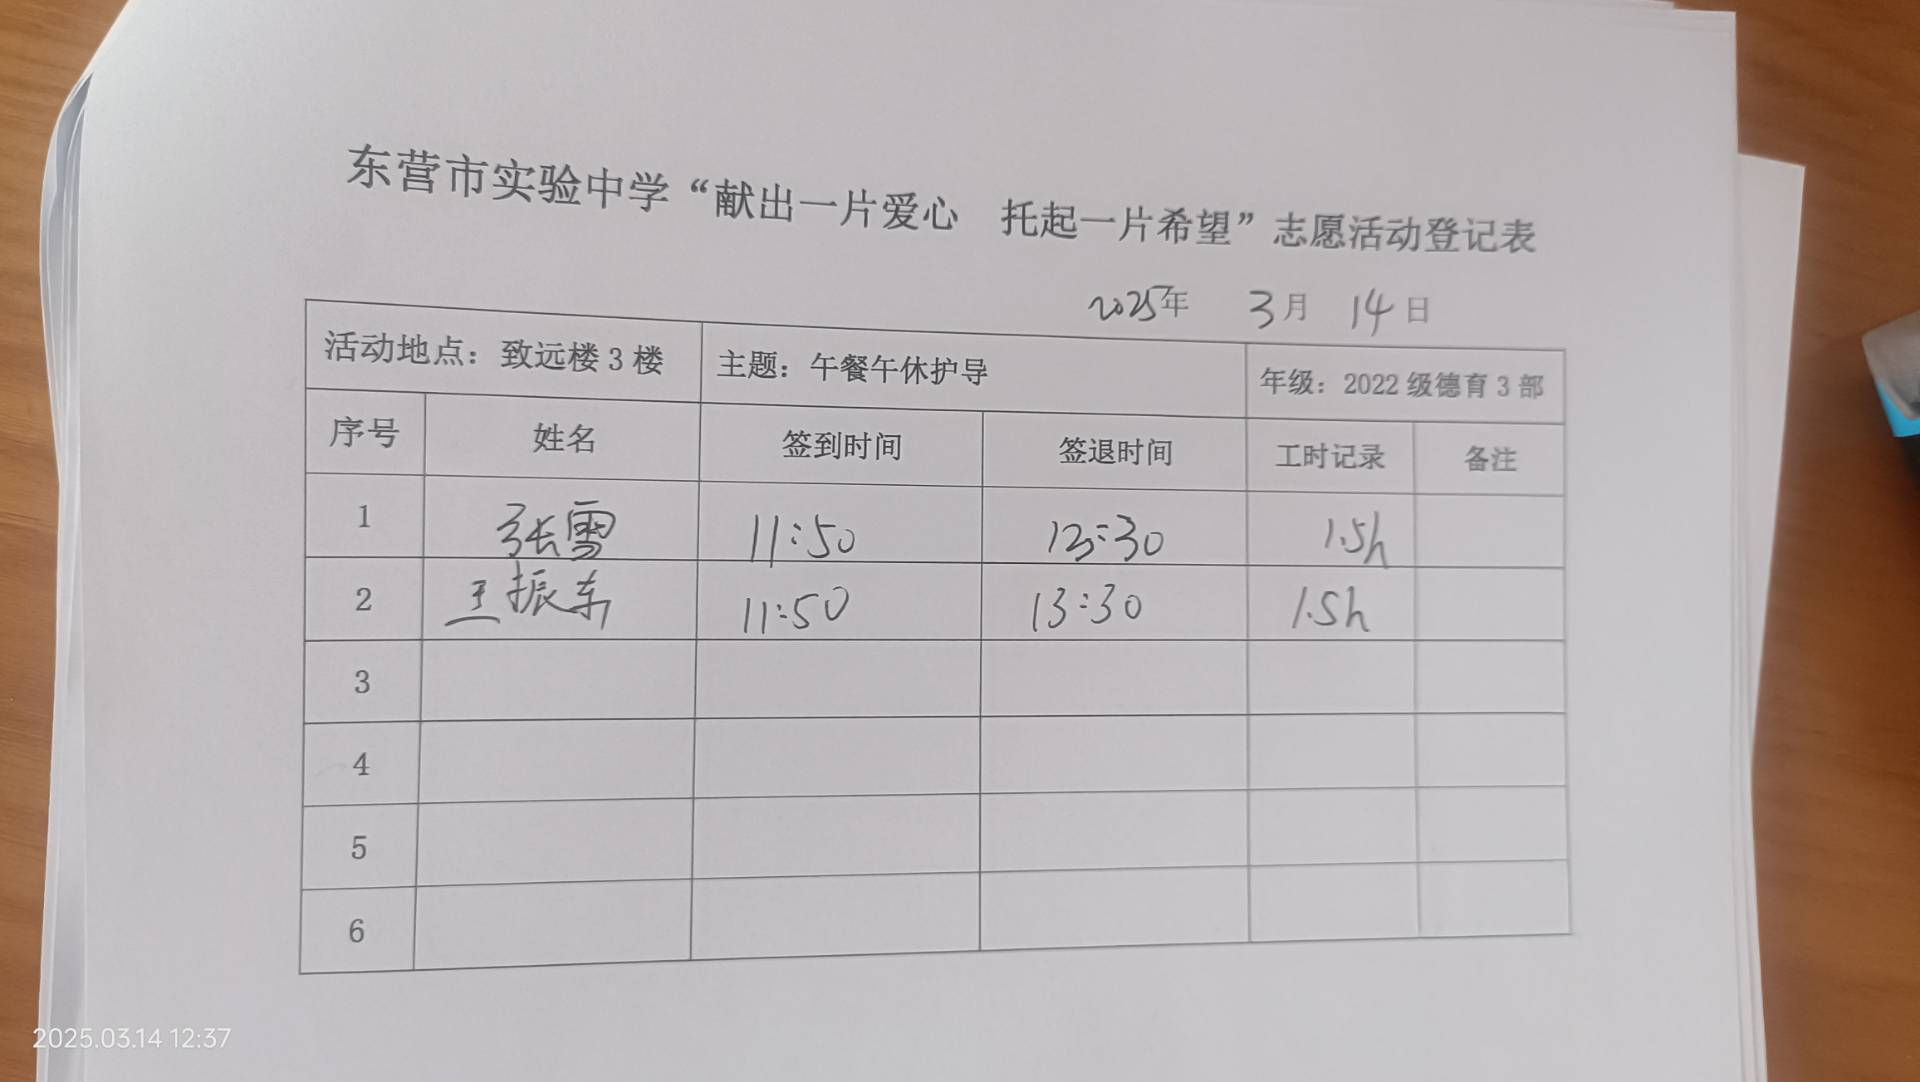 东营市实验中学“献出一片爱心 托起一片希望”志愿活动登记表
2025年 3月 14日
活动地点：致远楼3楼 主题：午餐午休护导 年级：2022级德育3部
序号 姓名 签到时间 签退时间 工时记录 备注
1 张雪 11:50 13:30 1.5h
2 王振东 11:50 13:30 1.5h
3
4
5
6
2025.03.14 12:37